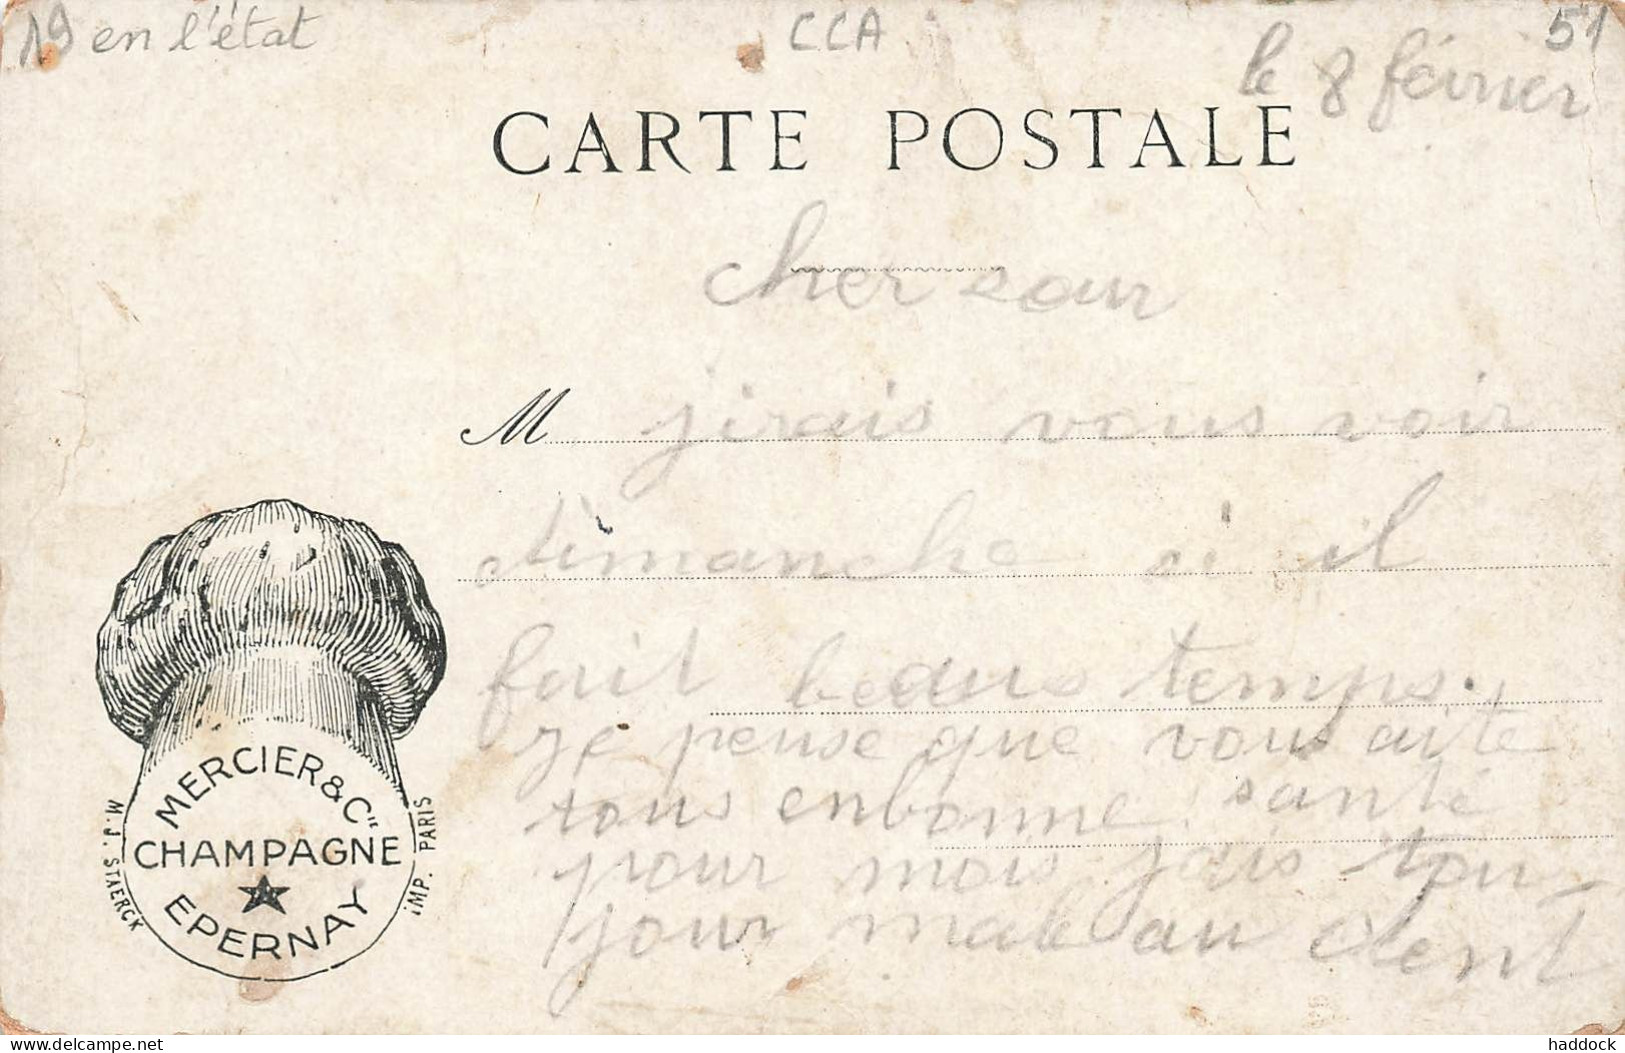 19 en l'état
CCA
51
le 8 février
CARTE POSTALE
cher sœur
M jirais vous voir
dimanche si il
fait beaus temps.
je pense que vous aite
tous enbonne santé
pour mois jais tou-
jour male au dent
MERCIER & Cie
CHAMPAGNE
EPERNAY
M. J. STAERCK
IMP. PARIS
delcampe.net
haddock